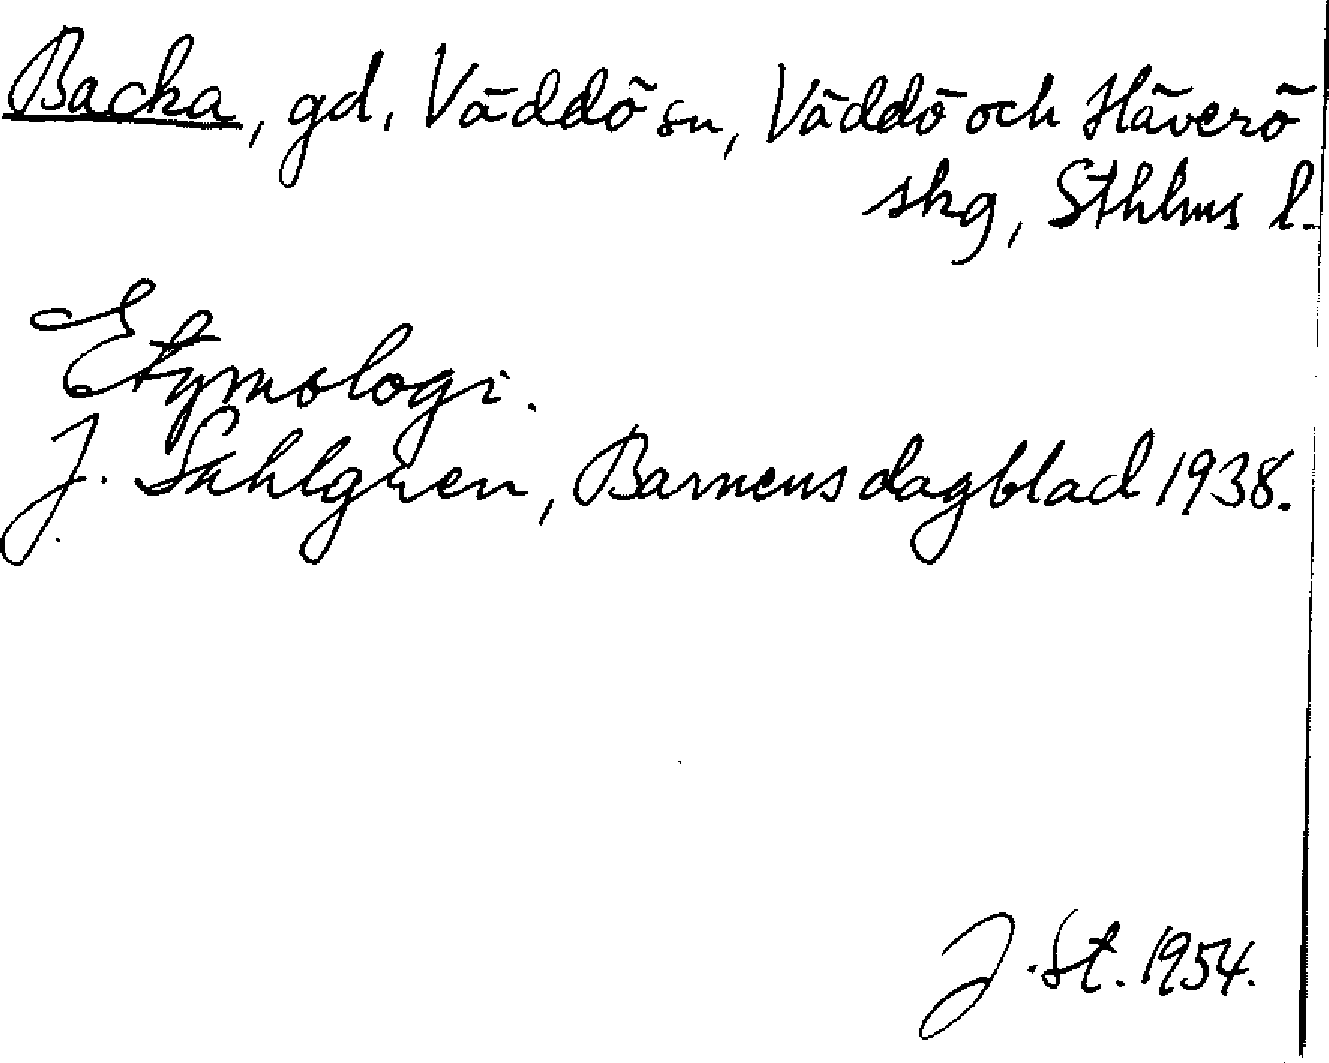 Backa, gd, Väddö sn, Väddö och Häverö
skg, Sthlms l.
Etymologi.
J. Sahlgren, Barnens dagblad 1938.
J. St. 1954.